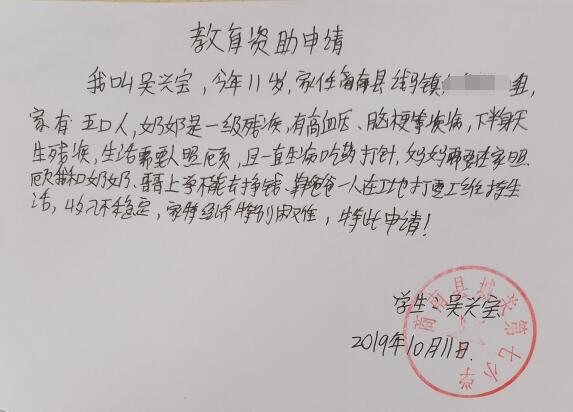 教育资助申请
我叫吴兴宝，今年11岁，家住商南县 镇
家有五口人，奶奶是一级残疾，有高血压、脑梗等疾病，下半身天
生残疾，生活需要人照顾，且一直生病吃药打针，妈妈需要在家照
顾 和奶奶、 上学不能去挣钱、靠爸爸一人在工地打工维持生
活，收入不稳定，家庭经济特别困难，特此申请！
学生：吴兴宝
2019年10月11日.
商南县城关第七小学